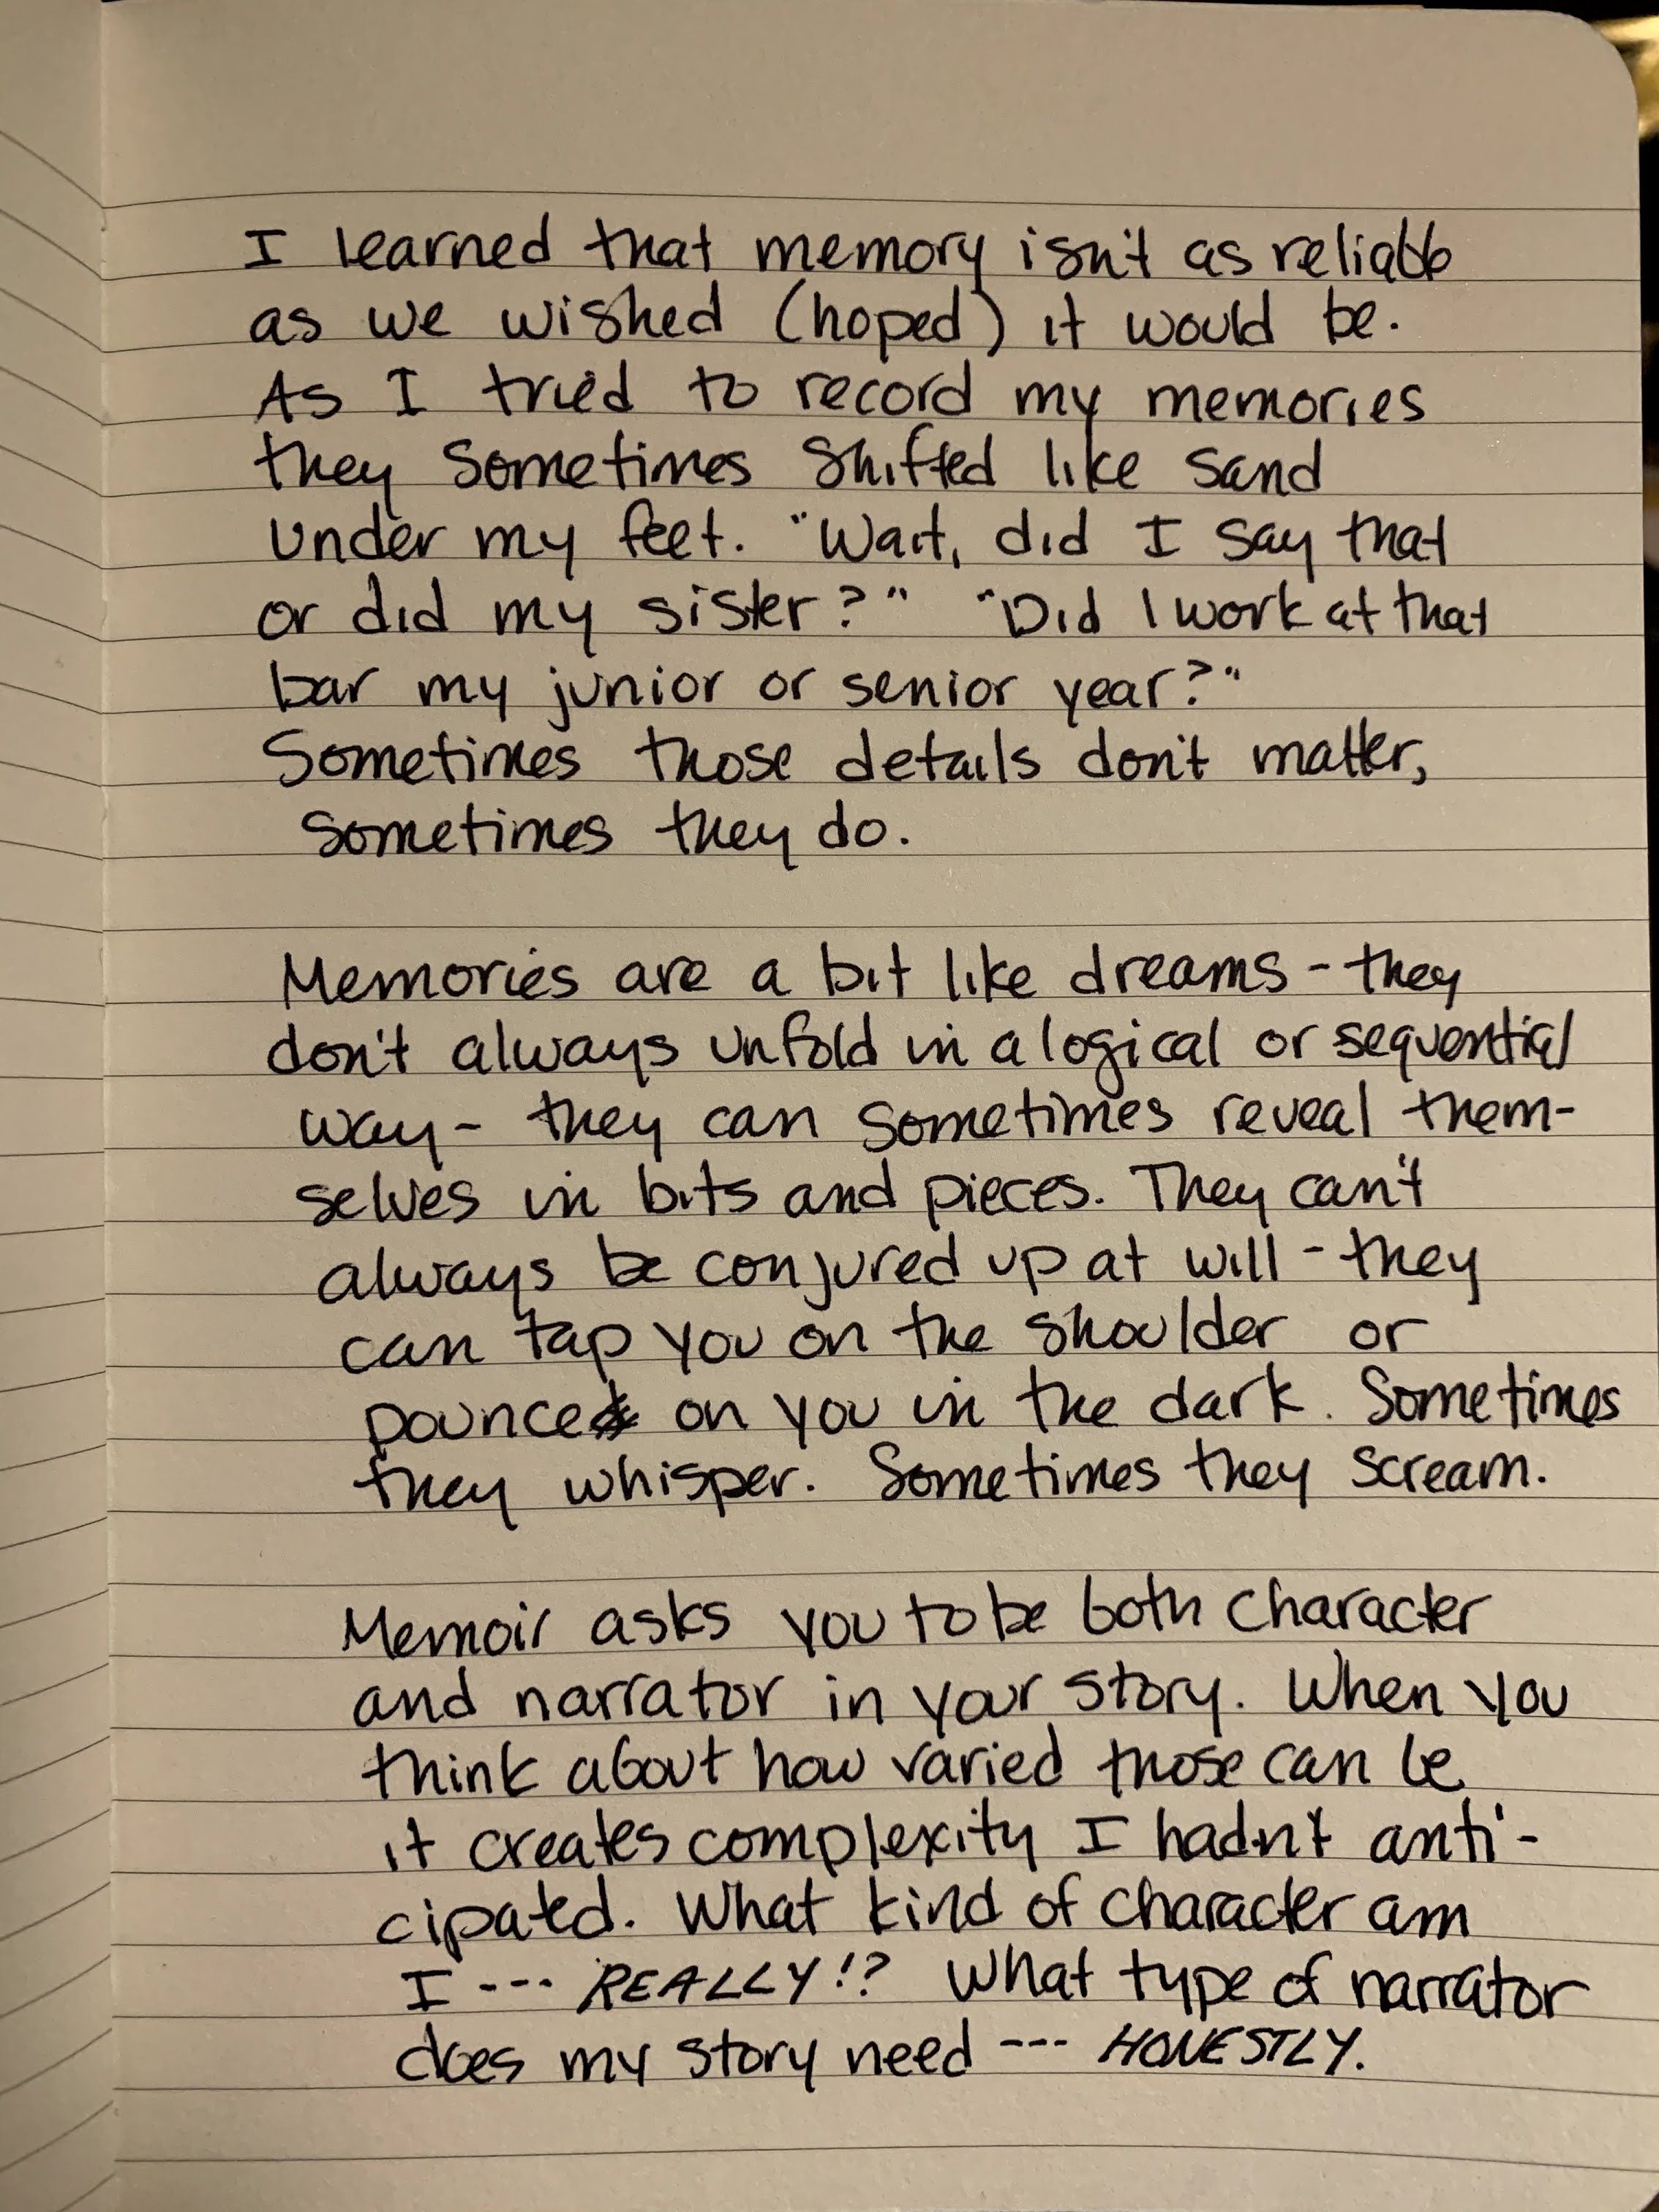 I learned that memory isn't as reliable
as we wished (hoped) it would be.
As I tried to record my memories
they sometimes shifted like sand
under my feet. "Wait, did I say that
or did my sister?" "Did I work at that
bar my junior or senior year?"
Sometimes those details don't matter,
sometimes they do.
Memories are a bit like dreams - they
don't always unfold in a logical or sequential
way - they can sometimes reveal them-
selves in bits and pieces. They can't
always be conjured up at will - they
can tap you on the shoulder or
pounce on you in the dark. Sometimes
they whisper. Sometimes they scream.
Memoir asks you to be both character
and narrator in your story. When you
think about how varied those can be
it creates complexity I hadn't anti-
cipated. What kind of character am
I --- REALLY!? What type of narrator
does my story need --- HONESTLY.